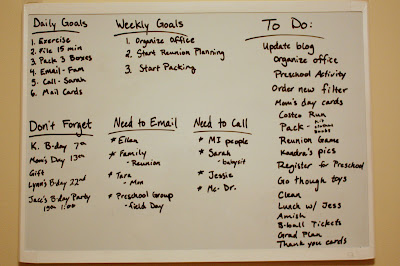 Daily Goals
1. Exercise
2. File 15 min
3. Pack 3 Boxes
4. Email - Fam
5. Call - Sarah
6. Mail Cards
Weekly Goals
1. Organize Office
2. Start Reunion Planning
3. Start Packing
To Do:
Update blog
Organize office
Preschool Activity
Order new filter
Mom's day cards
Costco Run
Pack - kit
clothes
books
Reunion Game
Kendra's pics
Register for Preschool
Go though toys
Clean
Lunch w/ Jess
Amish
B-ball Tickets
Grad Plan
Thank you cards
Don't Forget
K. B-day 7th
Mom's Day 13th
Gift
Lynn's B-day 22nd
Jace's B'day Party
19th 1:00
Need to Email
* Ellen
* Family
- Reunion
* Tara
- Mon
* Preschool Group
- field Day
Need to Call
* MI people
* Sarah
- babysit
* Jessie
* Mc. Dr.